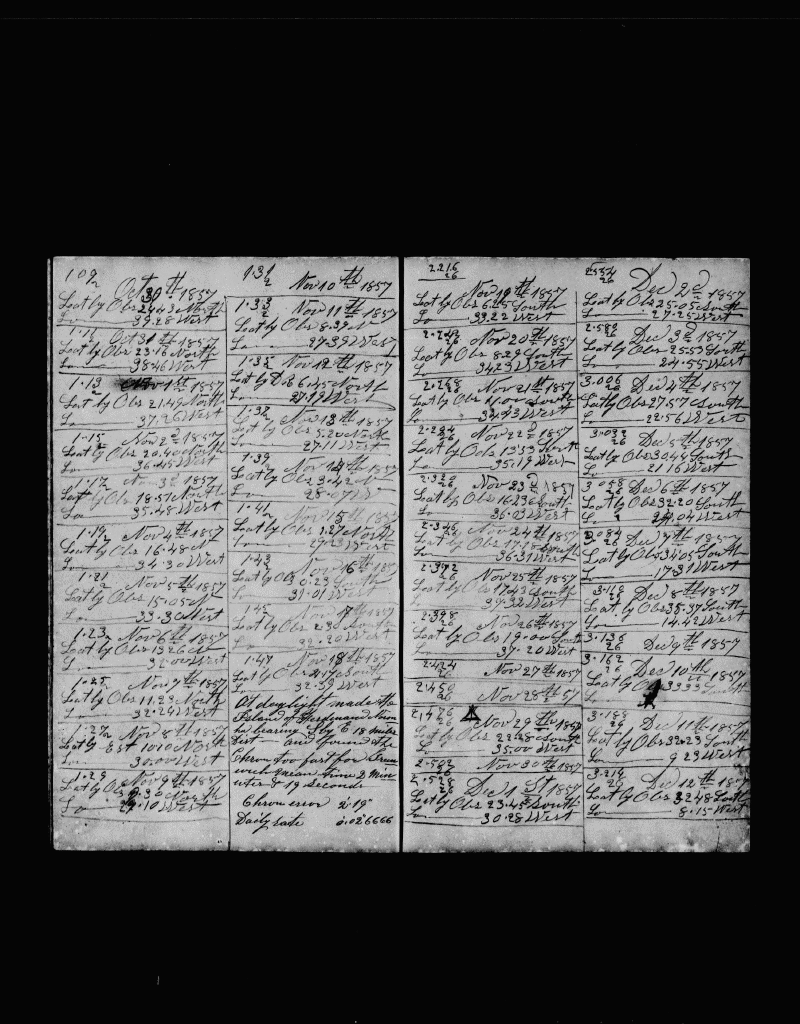 1.09½
Oct 30th 1857
Lat by Obs 24.43 North
Lo 39.28 West
1.11
Oct 31st 1857
Lat by Obs 23.16 North
Lo 38.46 West
1.13 1st 1857
Lat by Obs 21.49 North
Lo 37.26 West
1.15 Nov 2d 1857
Lat by Obs 20.40 North
Lo 36.45 West
1.17 3d 1857
Lat by Obs 18.51 North
Lo 35.48 West
1.19 Nov 4th 1857
Lat by Obs 16.48 N
Lo 34.30 West
1.21 Nov 5th 1857
Lat by Obs 15.05 N
Lo 33.30 West
1.23 Nov 6th 1857
Lat by Obs 13.26 N
Lo 32.00 West
1.25 Nov 7th 1857
Lat by Obs 11.23 North
Lo 32.29 West
1.27 Nov 8th 1857
Lat by Est 10.10 North
Lo 30.00 West
1.29 Nov 9th 1857
Lat by Obs North
Lo 10 West
1.31½ Nov 10th 1857
1.33 Nov 11th 1857
Lat by Obs 8.39 N
Lo 27.39 West
1.35 Nov 12th 1857
Lat by Obs 6.45 North
Lo 27.19 West
1.37 Nov 13th 1857
Lat by Obs 5.20 North
Lo 27.11 West
1.39 Nov 14th 1857
Lat by Obs 3.42 N
Lo 28.07 W
1.41 Nov 15th 1857
Lat by Obs 1.27 North
Lo West
1.43 Nov 16th 1857
Lat by Obs 0.23 South
Lo 31.01 West
1.45 Nov 17th 1857
Lat by Obs South
Lo 32.20 West
1.47 Nov 18th 1857
Lat by Obs South
Lo 32.39 West
At daylight made the
Island of Ferdinand
bearing S by E 18 miles
dist and found the
Chron too fast for Green
wich mean time 2 min
utes & 19 seconds
Chron error 2.19s
Daily rate 0.026666
2.216
26
Nov 19th 1857
Lat by Obs 6.25 South
Lo 33.22 West
2.242
26 Nov 20th 1857
Lat by Obs 8.29 South
Lo 34.23 West
2.268
26 Nov 21st 1857
Lat by Obs 11.00 South
Lo West
2.294
26 Nov 22d 1857
Lat by Obs 13.53 South
Lo 35.19 West
2.320
26 Nov 23d 1857
Lat by Obs 16.236 South
Lo 36.03 West
2.346
26 Nov 24th 1857
Lat by Obs South
Lo 36.31 West
2.372
26 Nov 25th 1857
Lat by Obs 17.43 South
Lo West
2.398
26 Nov 26th 1857
Lat by Obs 19.00 South
Lo 37.20 West
2.424
26 Nov 27th 1857
2.450
26 Nov 28th 57
2.476
26 Nov 29th 1857
Lat by Obs 22.28 South
Lo 35.00 West
2.502
26 Nov 30th 1857
2.528
26 Dec 1st 1857
Lat by Obs 23.45 South
Lo 30.28 West
2.554
26 Dec 2d 1857
Lat by Obs 25.05 South
Lo 27.25 West
2.580
26 Dec 3d 1857
Lat by Obs 25.53 South
Lo 24.55 West
3.006
26 Dec 4th 1857
Lat by Obs 27.57 South
Lo 22.56 West
3.032
26 Dec 5th 1857
Lat by Obs 30.44 South
Lo 21.16 West
3.058
26 Dec 6th 1857
Lat by Obs 32.20 South
Lo .04 West
3.084
26 Dec 7th 1857
Lat by Obs 34.05 South
Lo 17.31 West
3.110
26 Dec 8th 1857
Lat by Obs 35.37 South
Lo 14.42 West
3.136
26 Dec 9th 1857
3.162
26 Dec 10th 1857
Lat by Obs 33.33 South
Lo
3.188
26 Dec 11th 1857
Lat by Obs 32.23 South
Lo 9.23 West
3.214
26 Dec 12th 1857
Lat by Obs 32.48 South
Lo 8.15 West